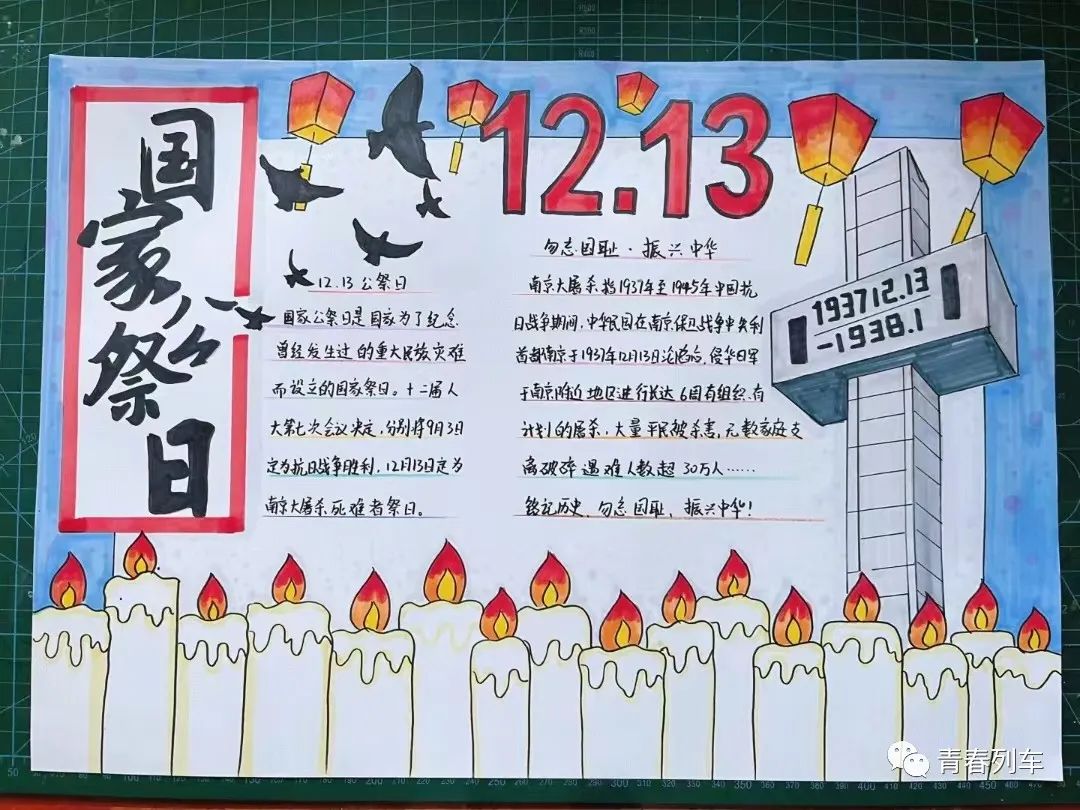 国家公祭日
12.13
193712.13
-1938.1
12.13公祭日
国家公祭日是国家为了纪念
曾经发生过的重大民族灾难
而设立的国家祭日。十二届人
大第七次会议决定，分别将9月3日
定为抗日战争胜利，12月13日定为
南京大屠杀死难者祭日。
勿忘国耻·振兴中华
南京大屠杀指1937年至1945年中国抗
日战争期间，中华民国在南京保卫战争中失利
首都南京于1937年12月13日沦陷后，侵华日军
于南京附近地区进行长达6周有组织、有
计划的屠杀，大量平民被杀害，无数家庭支
离破碎遇难人数超30万人……
铭记历史、勿忘国耻、振兴中华！
青春列车